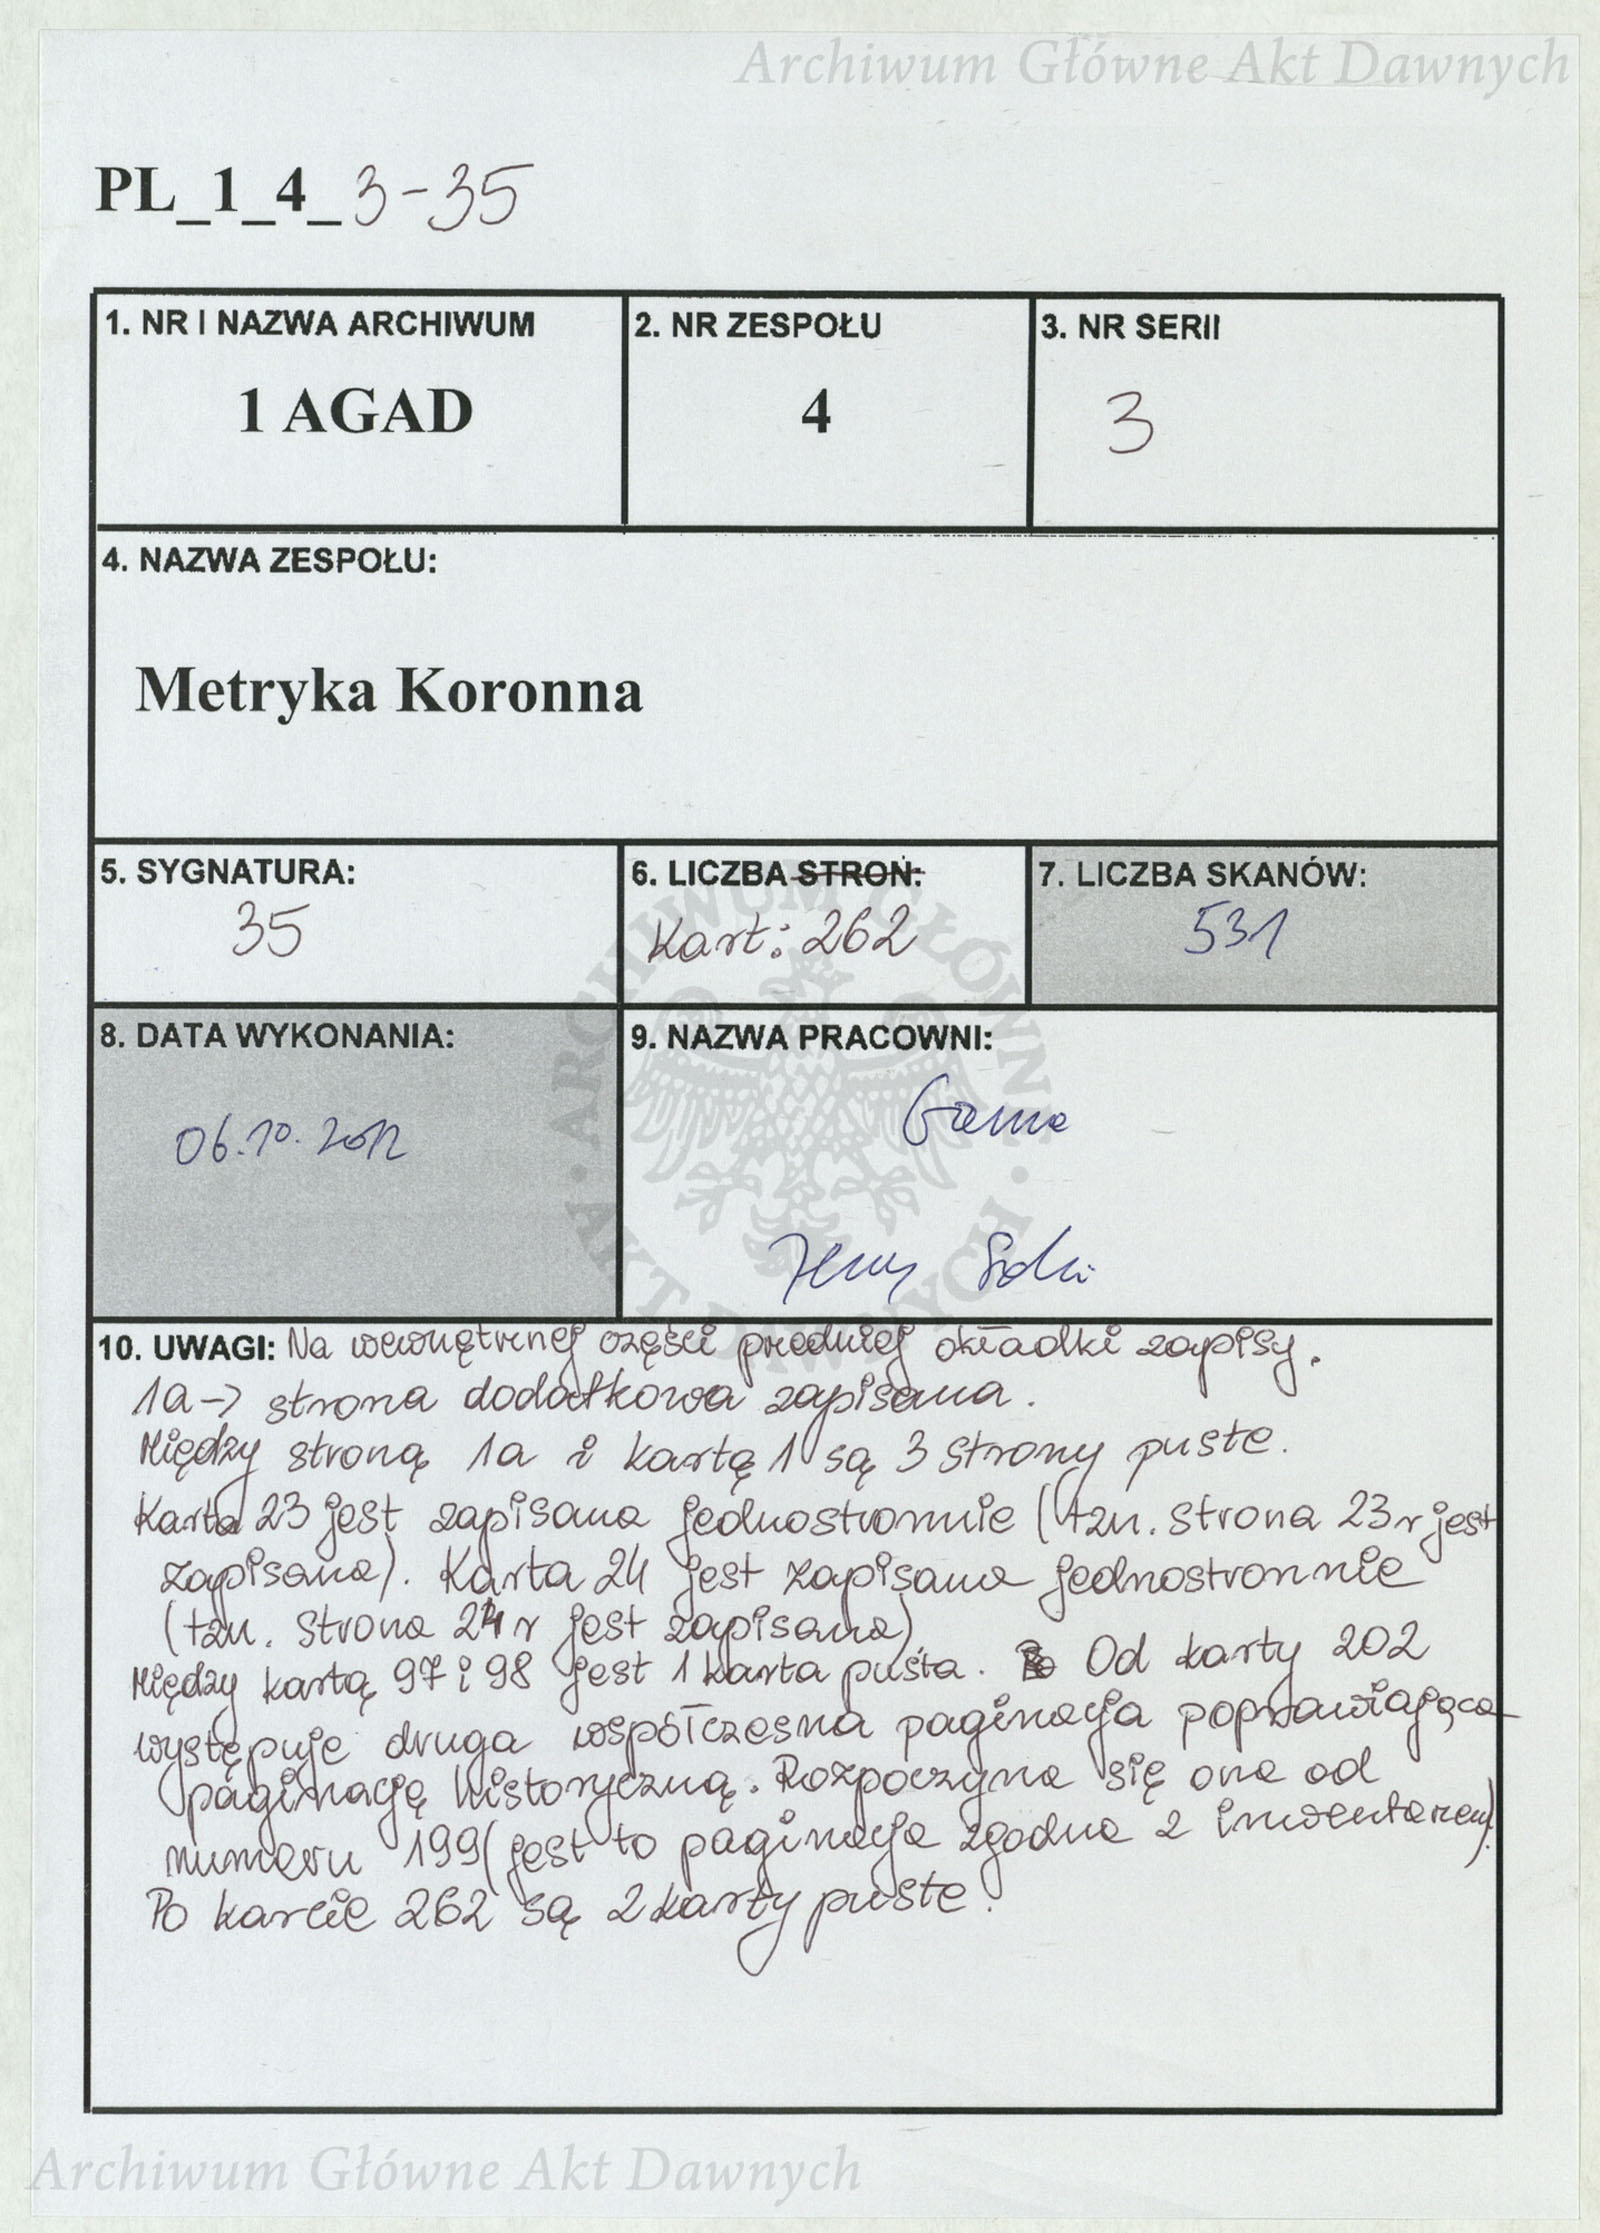 Archiwum Główne Akt Dawnych
PL_1_4_3-35
1. NR I NAZWA ARCHIWUM
1 AGAD
2. NR ZESPOŁU
4
3. NR SERII
3
4. NAZWA ZESPOŁU:
Metryka Koronna
5. SYGNATURA:
35
6. LICZBA STRON:
Kart: 262
7. LICZBA SKANÓW:
531
8. DATA WYKONANIA:
06.10.2012
9. NAZWA PRACOWNI:
Jerzy
10. UWAGI: Na wewnętrznej części przedniej okładki zapisy.
1a -> strona dodatkowa zapisana.
Między stroną 1a i kartą 1 są 3 strony puste.
Karta 23 jest zapisana jednostronnie (tzn. strona 23r jest
zapisana). Karta 24 jest zapisana jednostronnie
(tzn. strona 24r jest zapisana).
Między kartą 97 i 98 jest 1 karta pusta. Od karty 202
występuje druga współczesna paginacja poprawiająca
paginację historyczną. Rozpoczyna się ona od
numeru 199 (jest to paginacja zgodna z inwentarzem).
Po karcie 262 są 2 karty puste.
ARCHIWUM GŁÓWNE · AKT DAWNYCH ·
Archiwum Główne Akt Dawnych